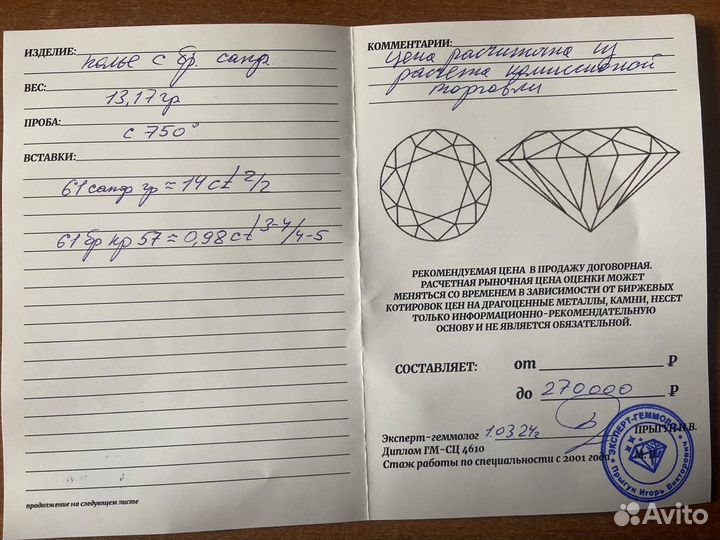 ИЗДЕЛИЕ: колье с бр. сапф.
ВЕС: 13,17гр
ПРОБА: с 750°
ВСТАВКИ:
61 сапф гр ≈ 14 ct 2/2
61 бр кр 57 ≈ 0,98 ct 3-4/4-5
продолжение на следующем листе
КОММЕНТАРИИ: Цена расчитана из
расчета комиссионой
торговли
РЕКОМЕНДУЕМАЯ ЦЕНА В ПРОДАЖУ ДОГОВОРНАЯ.
РАСЧЕТНАЯ РЫНОЧНАЯ ЦЕНА ОЦЕНКИ МОЖЕТ
МЕНЯТЬСЯ СО ВРЕМЕНЕМ В ЗАВИСИМОСТИ ОТ БИРЖЕВЫХ
КОТИРОВОК ЦЕН НА ДРАГОЦЕННЫЕ МЕТАЛЛЫ, КАМНИ, НЕСЕТ
ТОЛЬКО ИНФОРМАЦИОННО-РЕКОМЕНДАТЕЛЬНУЮ
ОСНОВУ И НЕ ЯВЛЯЕТСЯ ОБЯЗАТЕЛЬНОЙ.
СОСТАВЛЯЕТ: от ₽
до 270000 ₽
Эксперт-геммолог 1.03.24г ПРЫГУН И.В.
Диплом ГМ-СЦ 4610
Стаж работы по специальности с 2001 года М.П.
ЭКСПЕРТ-ГЕММОЛОГ
Прыгун Игорь Викторович
Avito